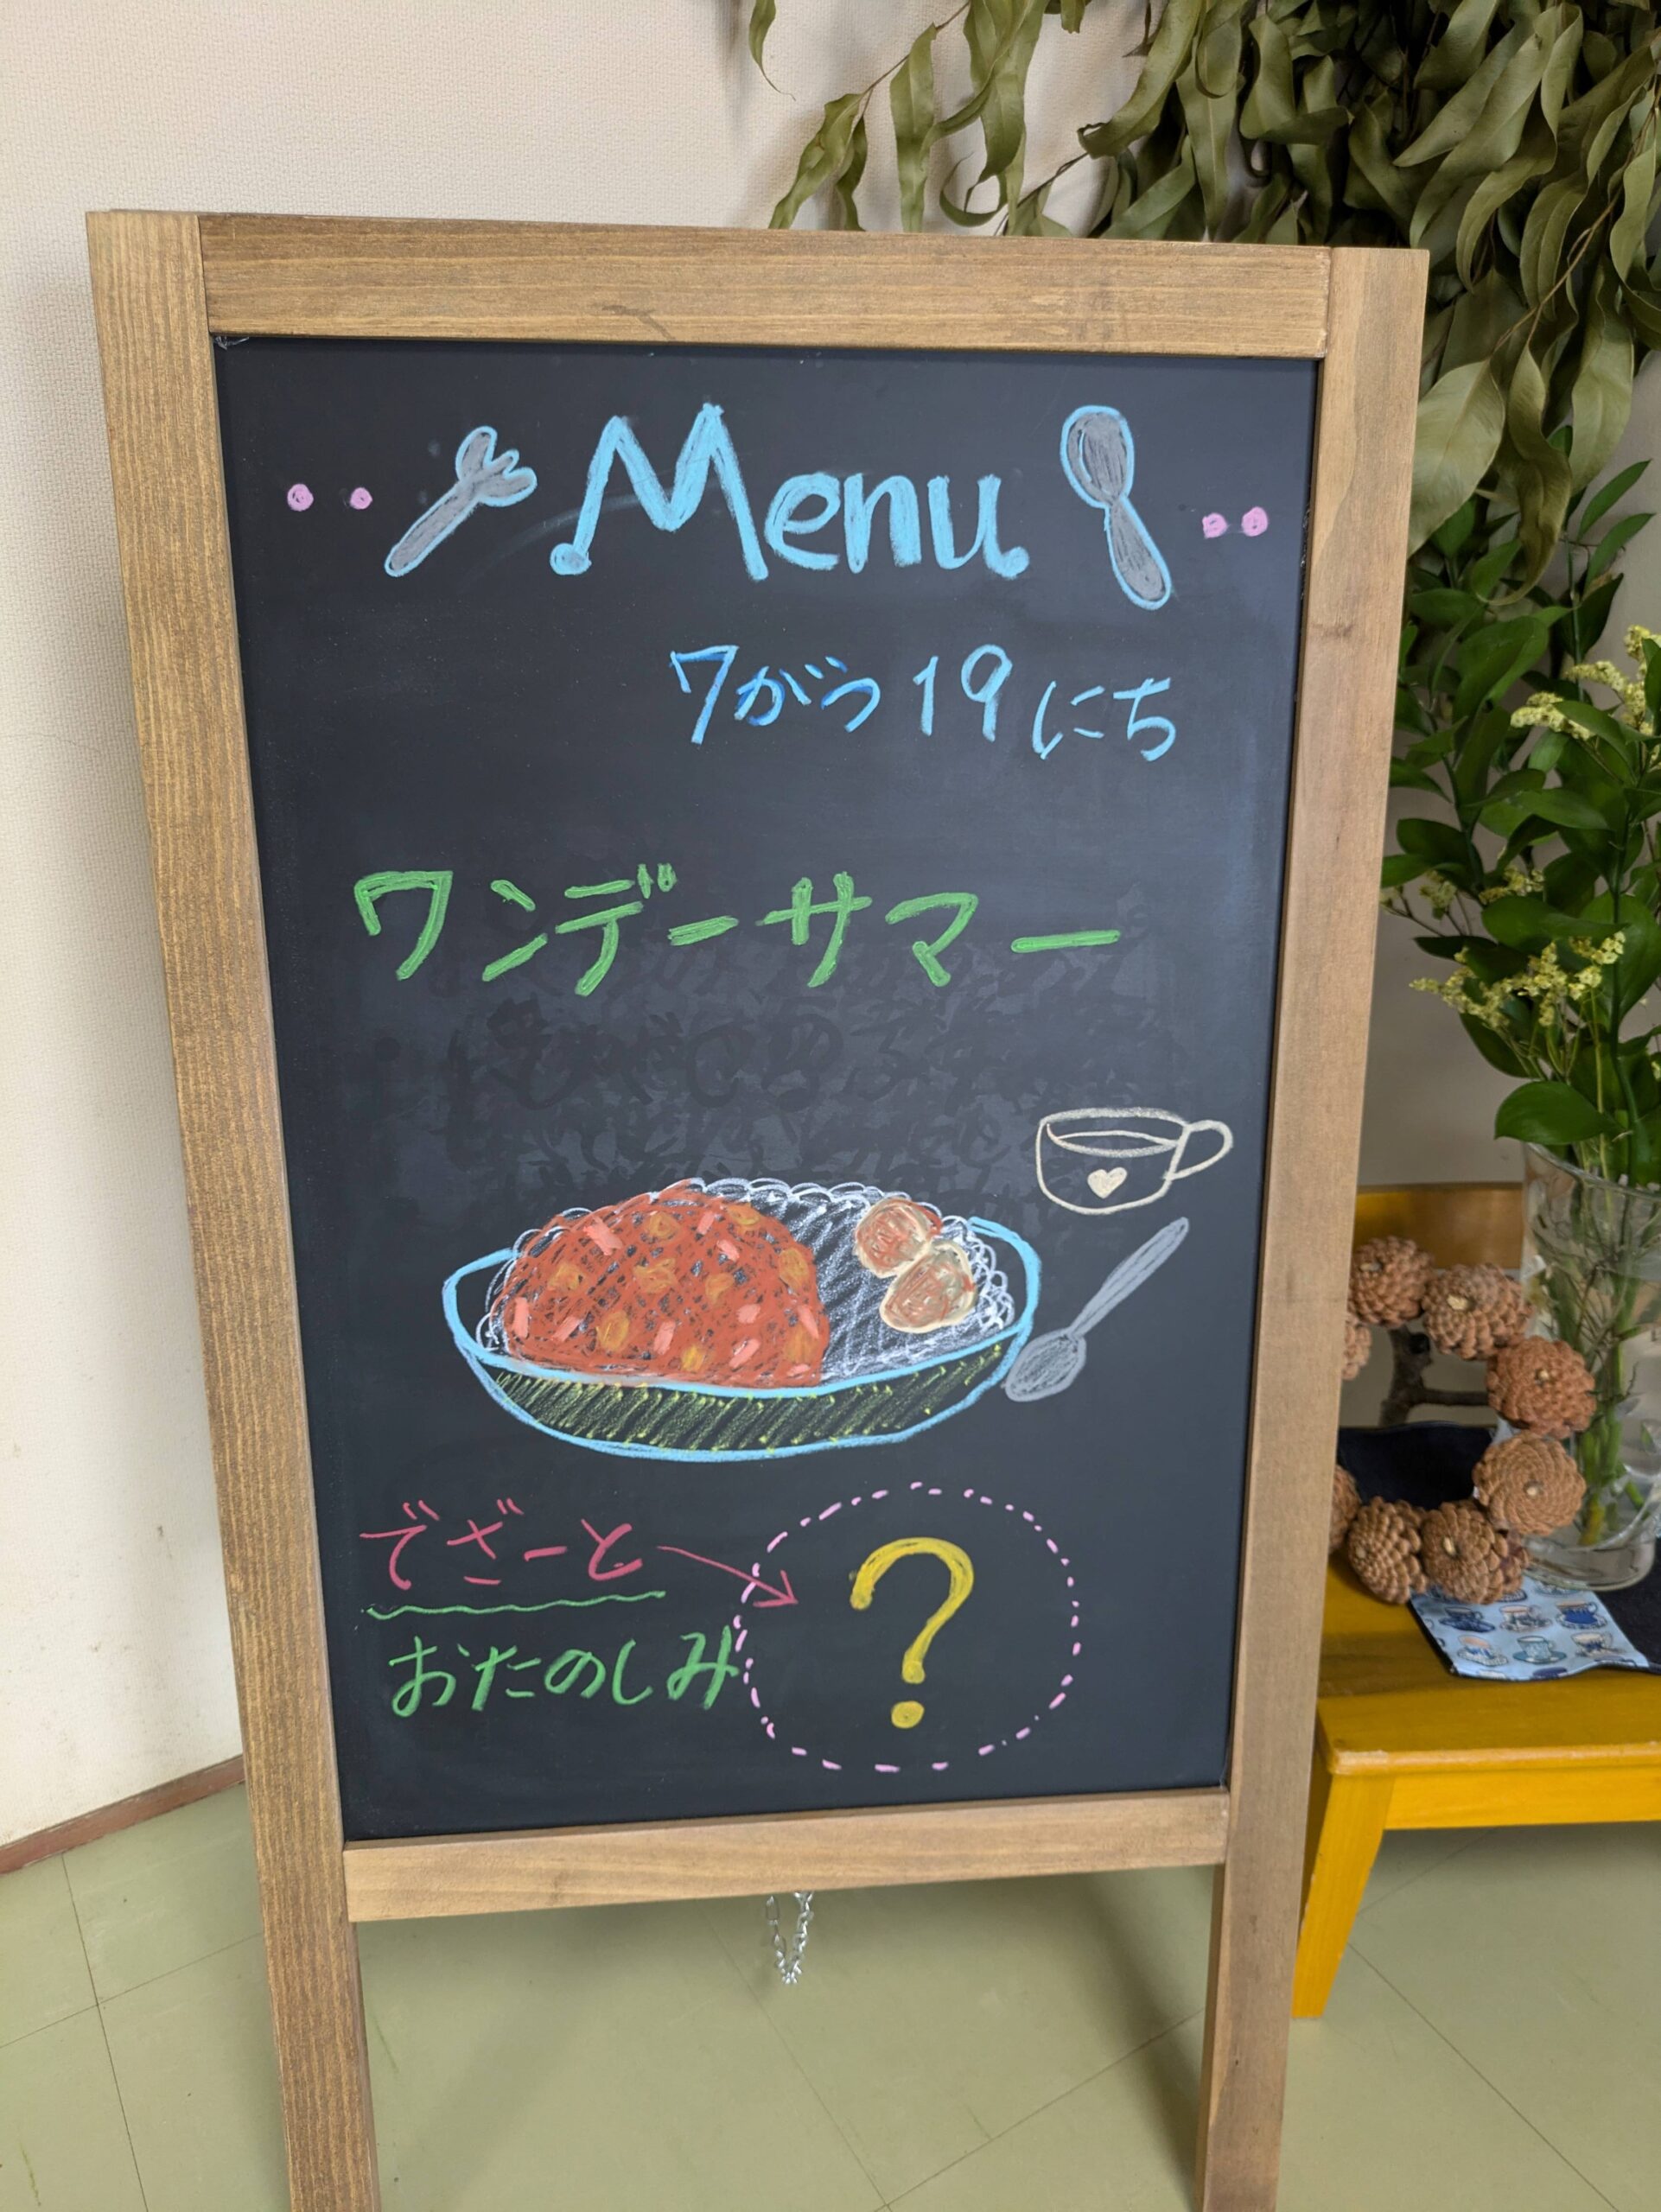 Menu
7がつ19にち
ワンデーサマー
でざーと
おたのしみ
?